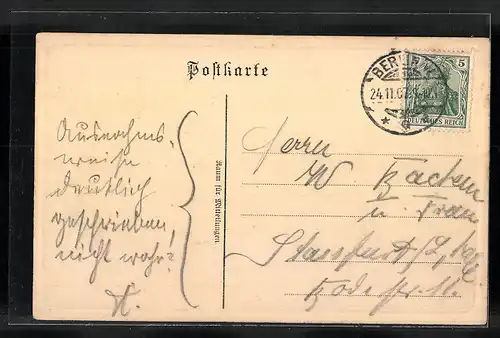 Postkarte
BERLIN
24.11.07
5
DEUTSCHES REICH
Ausnahms-
weise
deutlich
geschrieben,
nicht wahr?
H.
Raum für Mitteilungen
Herrn
W.
u. Frau
Stassfurt
Bodestr. 11.